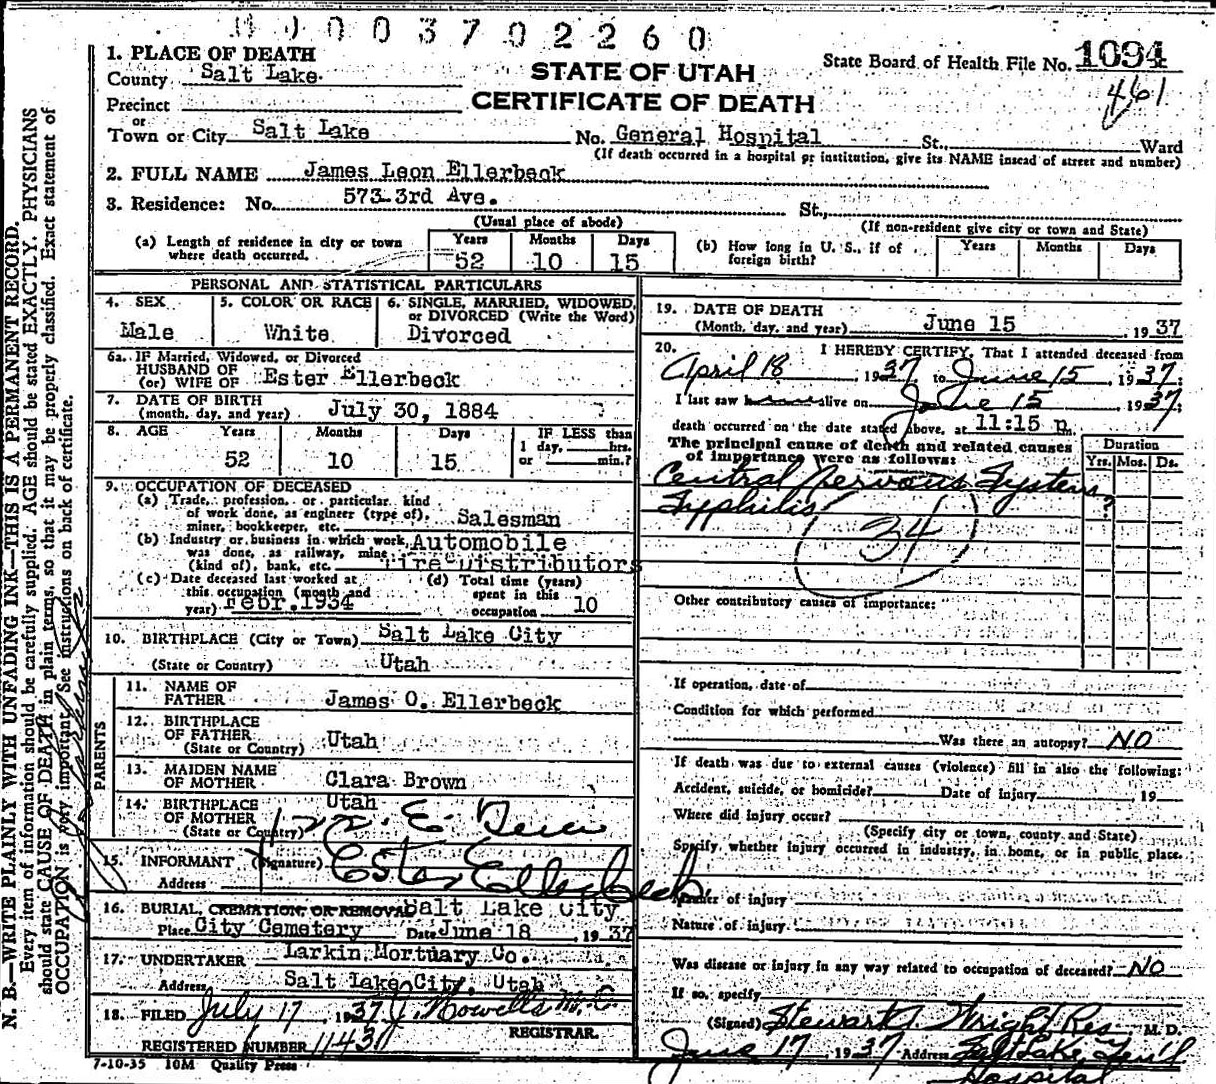 003702260
1. PLACE OF DEATH
County Salt Lake
STATE OF UTAH
State Board of Health File No. 1094
461
Precinct
or
CERTIFICATE OF DEATH
Town or City Salt Lake No. General Hospital St., Ward
(If death occurred in a hospital or institution, give its NAME insead of street and number)
2. FULL NAME James Leon Ellerbeck
3. Residence: No. 573-3rd Ave. St.,
(Usual place of abode) (If non-resident give city or town and State)
(a) Length of residence in city or town where death occurred. Years 52 Months 10 Days 15
(b) How long in U. S., if of foreign birth? Years Months Days
PERSONAL AND STATISTICAL PARTICULARS
4. SEX Male
5. COLOR OR RACE White
6. SINGLE, MARRIED, WIDOWED, or DIVORCED (Write the Word) Divorced
6a. IF Married, Widowed, or Divorced
HUSBAND OF
(or) WIFE OF Ester Ellerbeck
7. DATE OF BIRTH
(month, day, and year) July 30, 1884
8. AGE Years 52 Months 10 Days 15
IF LESS than 1 day, hrs. or min.?
9. OCCUPATION OF DECEASED
(a) Trade, profession, or particular kind
of work done, as engineer (type of),
miner, bookkeeper, etc. Salesman
(b) Industry or business in which work
was done, as railway, mine
(kind of), bank, etc. Automobile Tire Distributors
(c) Date deceased last worked at
this occupation (month and
year) Febr. 1934
(d) Total time (years)
spent in this
occupation 10
10. BIRTHPLACE (City or Town) Salt Lake City
(State or Country) Utah
PARENTS
11. NAME OF
FATHER James O. Ellerbeck
12. BIRTHPLACE
OF FATHER
(State or Country) Utah
13. MAIDEN NAME
OF MOTHER Clara Brown
14. BIRTHPLACE
OF MOTHER
(State or Country) Utah
15. INFORMANT (Signature) Ester Ellerbeck
Address
16. BURIAL, CREMATION, OR REMOVAL Salt Lake City
Place City Cemetery Date June 18, 1937
17. UNDERTAKER Larkin Mortuary Co.
Address Salt Lake City, Utah
18. FILED July 17, 1937 J. Howells M.C.
REGISTRAR.
REGISTERED NUMBER 11430
7-10-35 10M Quality Press
19. DATE OF DEATH
(Month, day, and year) June 15, 1937
20. I HEREBY CERTIFY, That I attended deceased from
April 18, 1937 to June 15, 1937;
I last saw h alive on June 15, 1937;
death occurred on the date stated above, at 11:15 p m.
The principal cause of death and related causes
of importance were as follows:
Duration
Yrs. Mos. Ds.
Central Nervous System ?
Syphilis
34
Other contributory causes of importance:
If operation, date of
Condition for which performed
Was there an autopsy? NO
If death was due to external causes (violence) fill in also the following:
Accident, suicide, or homicide? Date of injury 19
Where did injury occur?
(Specify city or town, county and State)
Specify whether injury occurred in industry, in home, or in public place.
Manner of injury
Nature of injury
Was disease or injury in any way related to occupation of deceased? NO
If so, specify
(Signed) Stewart A Wright Res, M. D.
June 17 1937 Address Salt Lake Gen'l
Hospital
N. B.—WRITE PLAINLY WITH UNFADING INK—THIS IS A PERMANENT RECORD.
Every item of information should be carefully supplied. AGE should be stated EXACTLY. PHYSICIANS
should state CAUSE OF DEATH in plain terms, so that it may be properly classified. Exact statement of
OCCUPATION is very important. See instructions on back of certificate.